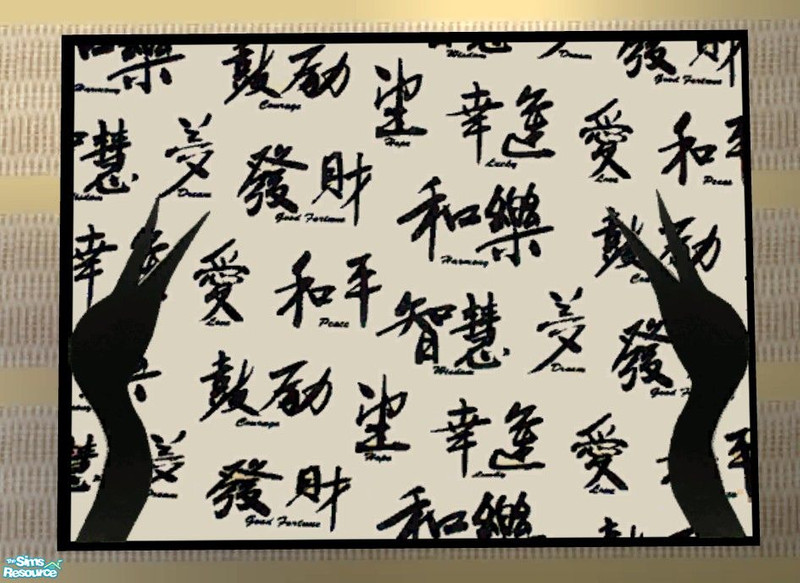 樂
Harmony
鼓励
Courage
望
Hope
Wisdom
Dream
發財
Good Fortune
慧
夢
Dream
發財
Good Fortune
幸運
Lucky
愛
Love
和平
Peace
幸
愛
Love
和平
Peace
和樂
Harmony
鼓励
智慧
Wisdom
夢
Dream
發
鼓励
Courage
望
Hope
幸運
Lucky
愛
Love
慧
夢
發財
Good Fortune
和樂
The Sims
Resource